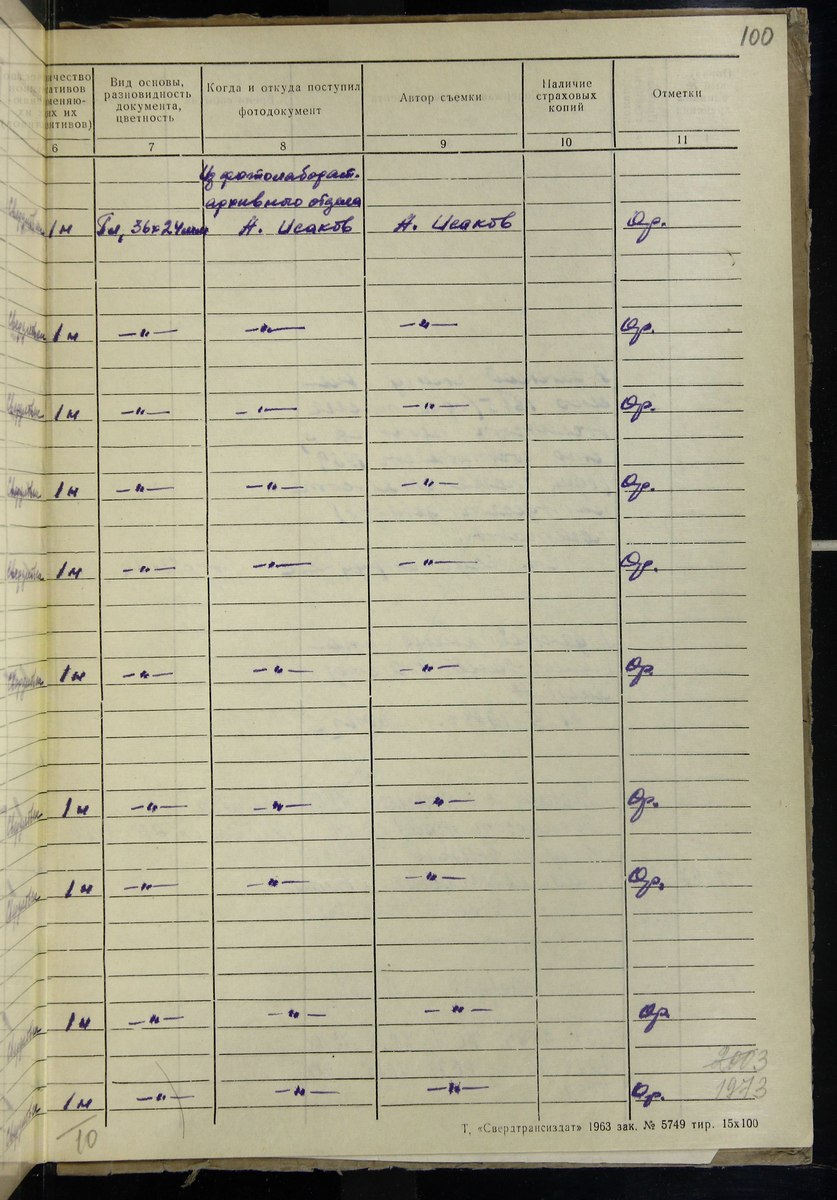 100
Вид основы,
разновидность
документа,
цветность
Когда и откуда поступил
фотодокумент
Автор съемки
Наличие
страховых
копий
Отметки
6 7 8 9 10 11
Из фотолаборат.
архивного отдела
1 н Гл, 36×24мм А. Исаков А. Исаков Ор.
1 н —"— —"— —"— Ор.
1 н —"— —"— —"— Ор.
1 н —"— —"— —"— Ор.
1 н —"— —"— —"— Ор.
1 н —"— —"— —"— Ор.
1 н —"— —"— —"— Ор.
1 н —"— —"— —"— Ор.
1 н —"— —"— —"— Ор.
2003
1 н —"— —"— —"— Ор. 1973
10
Т, «Свердтрансиздат» 1963 зак. № 5749 тир. 15х100